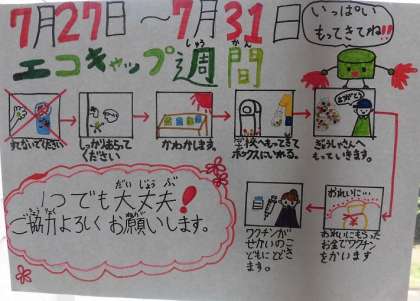 7月27日〜7月31日
エコキャップ週間
しゅう かん
いっぱい
もってきてね!!
すてないでください
しっかりあらって
ください
かわかします。
学校へもってきて
ボックスにいれる。
ありがとう
ぎょうしゃさんへ
もっていきます。
おれいに…
おれいにもらった
お金でワクチン
をかいます
ワクチンが
せかいのこ
どもにとどき
ます。
1つでも大丈夫!
だい じょう ぶ
ご協力よろしくお願いします。